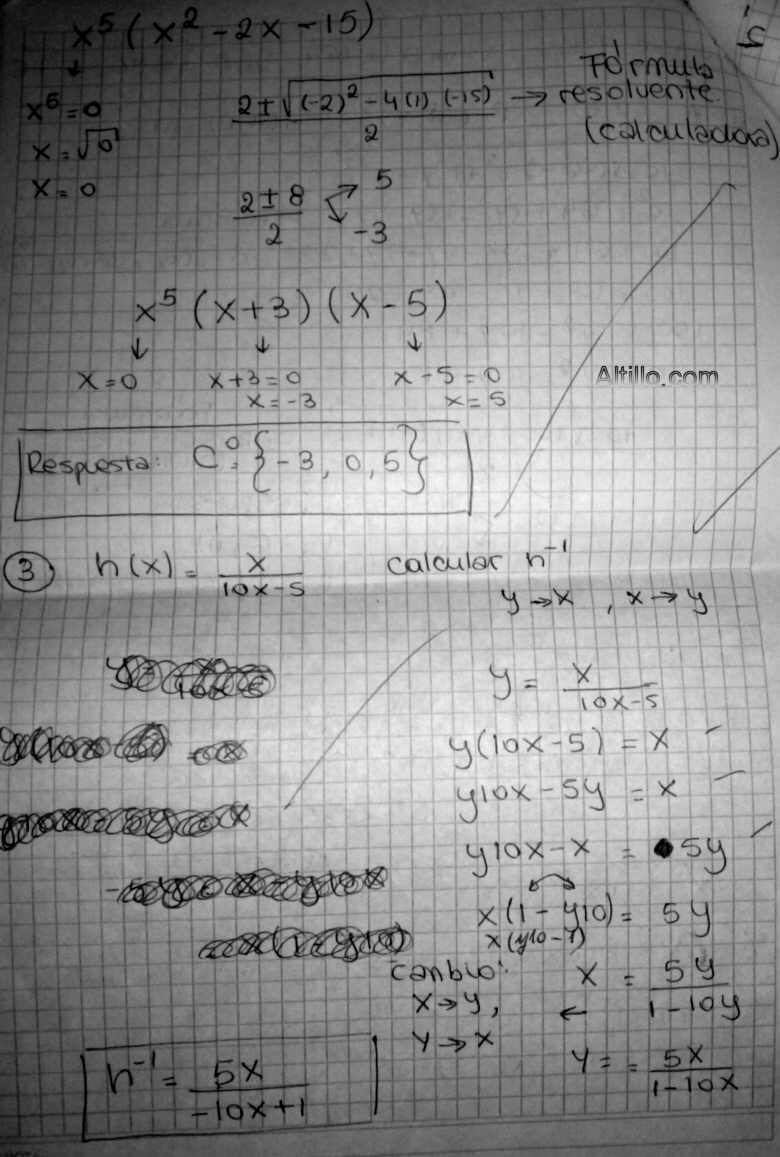 x⁵(x² - 2x - 15)
↓
x⁵ = 0
x = √0
x = 0
2 ± √((-2)² - 4(1)(-15)) / 2 → Fórmula
resolvente
(calculadora)
(2 ± 8) / 2 → 5
→ -3
x⁵ (x+3) (x-5)
↓ ↓ ↓
x = 0 x+3 = 0 x - 5 = 0
x = -3 x = 5
Altillo.com
Respuesta: C⁰ = {-3, 0, 5}
③ h(x) = x / (10x-5) calcular h⁻¹
y → x , x → y
y = x / (10x-5)
y(10x-5) = x
y10x - 5y = x
y10x - x = 5y
x(1 - y10) = 5y
x(y10-1)
cambio: x = 5y / (1-10y)
x → y, ←
y → x
y = = 5x / (1-10x)
h⁻¹ = 5x / (-10x+1)